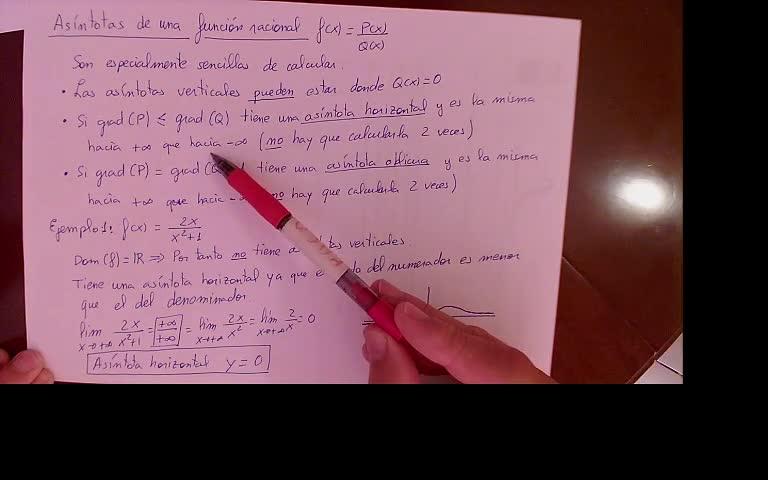 Asíntotas de una función racional f(x) = P(x)/Q(x)
Son especialmente sencillas de calcular.
• Las asíntotas verticales pueden estar donde Q(x)=0
• Si grad(P) ≤ grad(Q) tiene una asíntota horizontal y es la misma
hacia +∞ que hacia -∞ (no hay que calcularla 2 veces)
• Si grad(P) = grad(Q) tiene una asíntota oblicua y es la misma
hacia +∞ que hacia -∞ no hay que calcularla 2 veces)
Ejemplo 1: f(x) = 2x/x²+1
Dom(f)=ℝ ⇒ Por tanto no tiene verticales.
Tiene una asíntota horizontal ya que el del numerador es menor
que el del denominador
lim x→+∞ 2x/x²+1 = +∞/+∞ = lim x→+∞ 2x/x² = lim x→+∞ 2/x = 0
Asíntota horizontal y=0